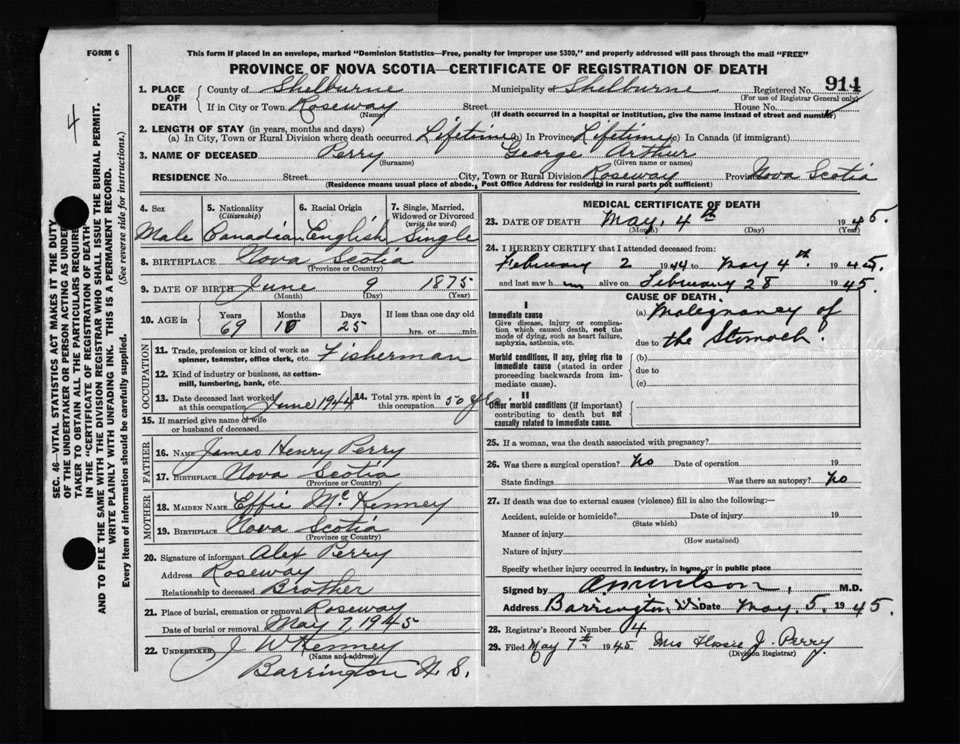 FORM 6
This form if placed in an envelope, marked "Dominion Statistics—Free, penalty for improper use $300," and properly addressed will pass through the mail "FREE"
PROVINCE OF NOVA SCOTIA—CERTIFICATE OF REGISTRATION OF DEATH
4
SEC. 46—VITAL STATISTICS ACT MAKES IT THE DUTY
OF THE UNDERTAKER OR PERSON ACTING AS UNDER
TAKER TO OBTAIN ALL THE PARTICULARS REQUIRE
IN THE "CERTIFICATE OF REGISTRATION OF DEATH
AND TO FILE THE SAME WITH THE DIVISION REGISTRAR WHO SHALL ISSUE THE BURIAL PERMIT.
WRITE PLAINLY WITH UNFADING INK. THIS IS A PERMANENT RECORD.
Every item of information should be carefully supplied. (See reverse side for instructions.)
1. PLACE OF DEATH
County of Shelburne Municipality of Shelburne Registered No. 914
(For use of Registrar General only)
If in City or Town Roseway Street House No.
(Name) (If death occurred in a hospital or institution, give the name instead of street and number)
2. LENGTH OF STAY (in years, months and days)
(a) In City, Town or Rural Division where death occurred Lifetime (b) In Province Lifetime (c) In Canada (if immigrant)
3. NAME OF DECEASED Perry George Arthur
(Surname) (Given name or names)
RESIDENCE No. Street City, Town or Rural Division Roseway Province Nova Scotia
(Residence means usual place of abode. Post Office Address for residents in rural parts not sufficient)
4. Sex 5. Nationality (Citizenship) 6. Racial Origin 7. Single, Married, Widowed or Divorced (write the word)
Male Canadian English Single
8. BIRTHPLACE Nova Scotia
(Province or Country)
9. DATE OF BIRTH June 9 1875
(Month) (Day) (Year)
10. AGE in Years Months Days If less than one day old
69 10 25 hrs. or min.
OCCUPATION
11. Trade, profession or kind of work as spinner, teamster, office clerk, etc. Fisherman
12. Kind of industry or business, as cotton-mill, lumbering, bank, etc.
13. Date deceased last worked at this occupation June 1944 14. Total yrs. spent in this occupation 50 yrs.
15. If married give name of wife or husband of deceased
FATHER
16. NAME James Henry Perry
17. BIRTHPLACE Nova Scotia
(Province or Country)
MOTHER
18. MAIDEN NAME Effie McKenney
19. BIRTHPLACE Nova Scotia
(Province or Country)
20. Signature of informant Alex Perry
Address Roseway
Relationship to deceased Brother
21. Place of burial, cremation or removal Roseway
Date of burial or removal May 7, 1945
22. UNDERTAKER J W Kenney
(Name and address)
Barrington N. S.
MEDICAL CERTIFICATE OF DEATH
23. DATE OF DEATH May, 4th 1945.
(Month) (Day) (Year)
24. I HEREBY CERTIFY that I attended deceased from:
February 2 1944 to May 4th. 1945.
and last saw him alive on February 28 1945.
CAUSE OF DEATH
I
Immediate cause
Give disease, injury or complication which caused death, not the mode of dying, such as heart failure, asphyxia, asthenia, etc.
(a) Malegnancy of
due to the Stomach.
Morbid conditions, if any, giving rise to immediate cause (stated in order proceeding backwards from immediate cause).
(b)
due to
(c)
II
Other morbid conditions (if important) contributing to death but not causally related to immediate cause.
25. If a woman, was the death associated with pregnancy?
26. Was there a surgical operation? No Date of operation 19
State findings Was there an autopsy? No
27. If death was due to external causes (violence) fill in also the following:—
Accident, suicide or homicide? Date of injury 19
(State which)
Manner of injury
(How sustained)
Nature of injury
Specify whether injury occurred in industry, in home, or in public place
Signed by M.D.
Address Barrington, N.S. Date May. 5. 1945.
28. Registrar's Record Number 4
29. Filed May 7th 1945 Mrs J. Perry
(Division Registrar)